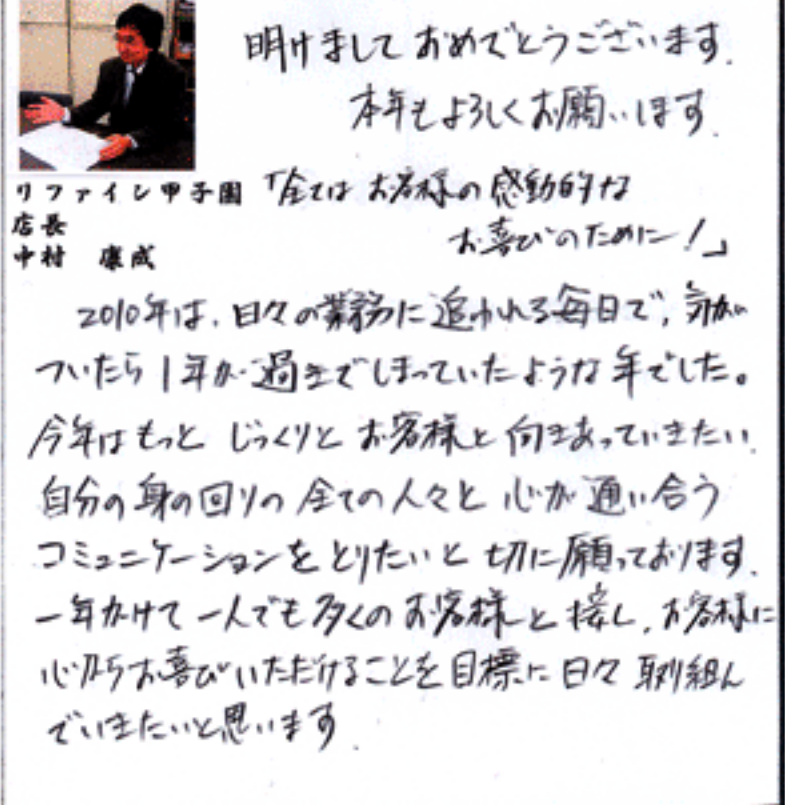 明けましておめでとうございます。
本年もよろしくお願いします。
リファイン甲子園
店長
中村 康成
「全ては お客様の感動的な
お喜びのために!」
2010年は、日々の業務に追われる毎日で、気が
ついたら1年が過ぎてしまっていたような年でした。
今年はもっと じっくりと お客様と向きあっていきたい。
自分の身の回りの全ての人々と心が通い合う
コミュニケーションをとりたいと切に願っております。
一年かけて一人でも多くのお客様と接し、お客様に
心からお喜びいただけることを目標に日々取り組ん
でいきたいと思います。